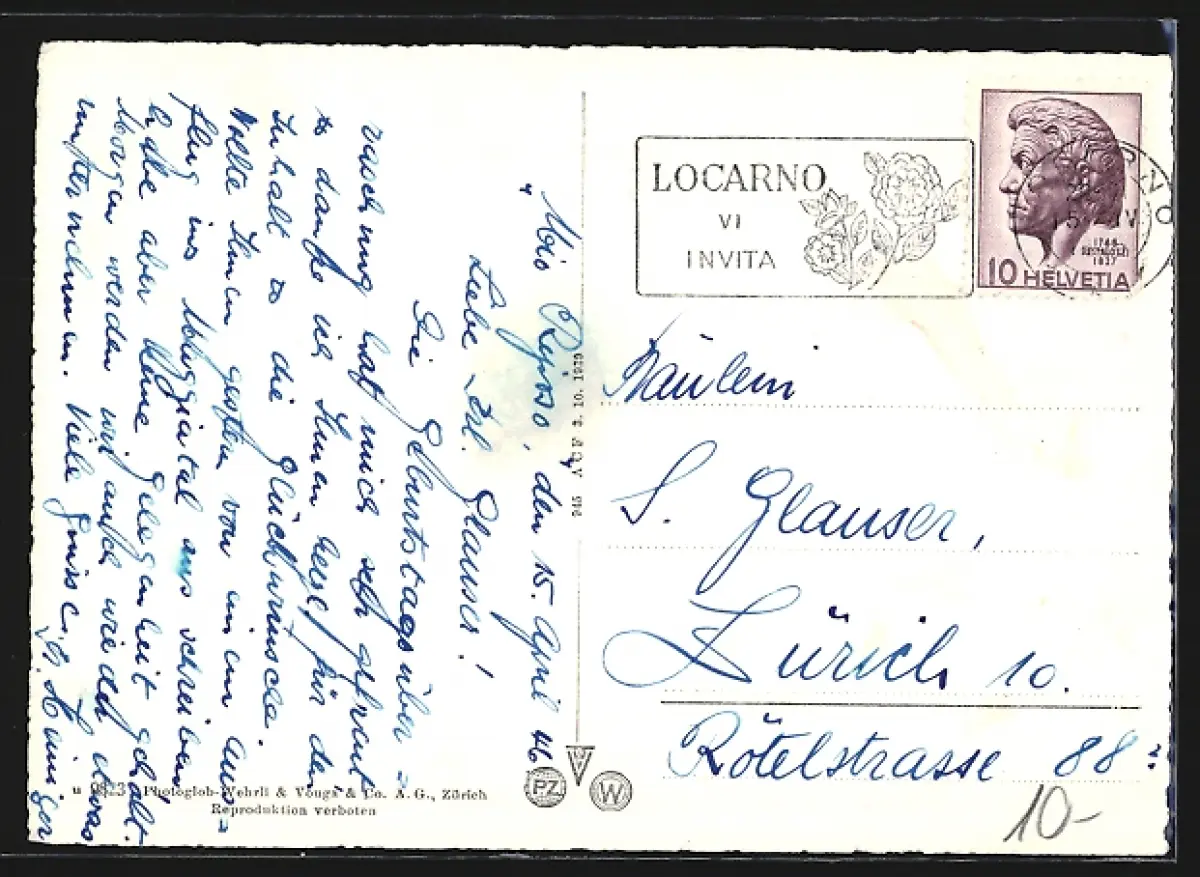 "Mio Riposo, den 15. April 46
Liebe Frl. Glauser!
Die Geburtstagsüber=
raschung hat mich sehr gefreut
& danke ich Ihnen herzl. für den
Inhalt & die Glückwünsche.
Wollte Ihnen gestern von einem Aus=
flug ins Maggiatal aus schreiben
habe aber keine Gelegenheit gehabt.
Morgen werden wir auch wieder etwas
unternehmen. Viele Grüsse,
945 AUF 3. 10. 1929
u 9823 Photoglob-Wehrli & Vouga & Co. A. G., Zürich
Reproduktion verboten
PZ
W
LOCARNO
VI
INVITA
1746
PESTALOZZI
1827
10 HELVETIA
Fräulein
S. Glauser,
Zürich 10.
Rötelstrasse 88
10-